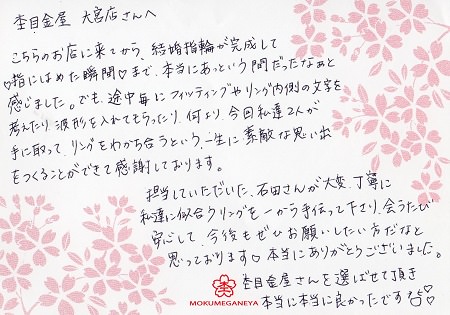 杢目金屋 大宮店さんへ
こちらのお店に来てから、結婚指輪が完成して
♡指にはめた瞬間♡まで、本当にあっという間だったなぁと
感じました。でも、途中毎にフィッティングやリング内側の文字を
考えたり、波形を入れてもらったり、何より、今回私達2人が
手に取って、リングをわかち合うという、一生に素敵な思い出
をつくることができて感謝しております。
担当していただいた、石田さんが大変、丁寧に
私達に似合うリングを一から手伝って下さり、会うたび
安心して、今後もぜひお願いしたい方だなと
思っております♡本当にありがとうございました。
杢目金屋さんを選ばせて頂き
本当に本当に良かったです
MOKUMEGANEYA